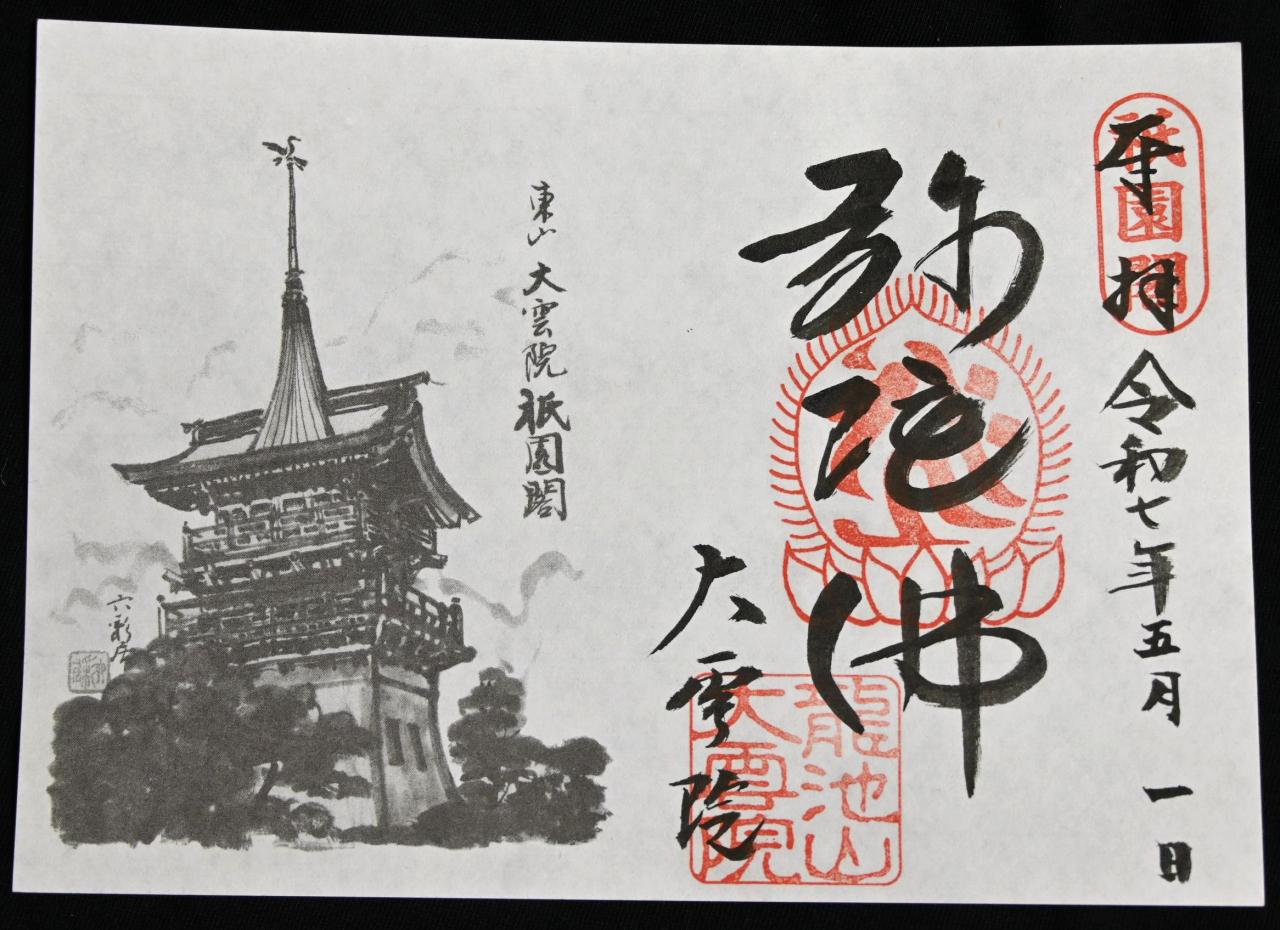 奉拝
祇園閣
令和七年五月一日
弥陀佛
大雲院
龍池山
大雲院
東山 大雲院 祇園閣
六彩居